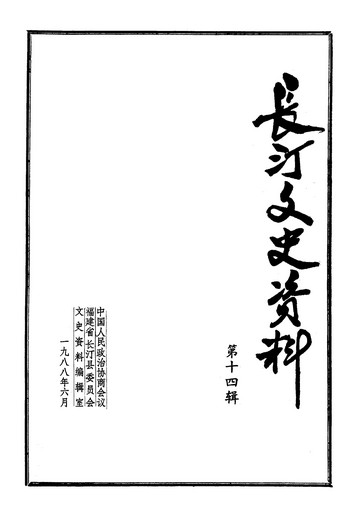 长汀文史资料
第十四辑
中国人民政治协商会议
福建省长汀县委员会
文史资料编辑室
一九八八年六月